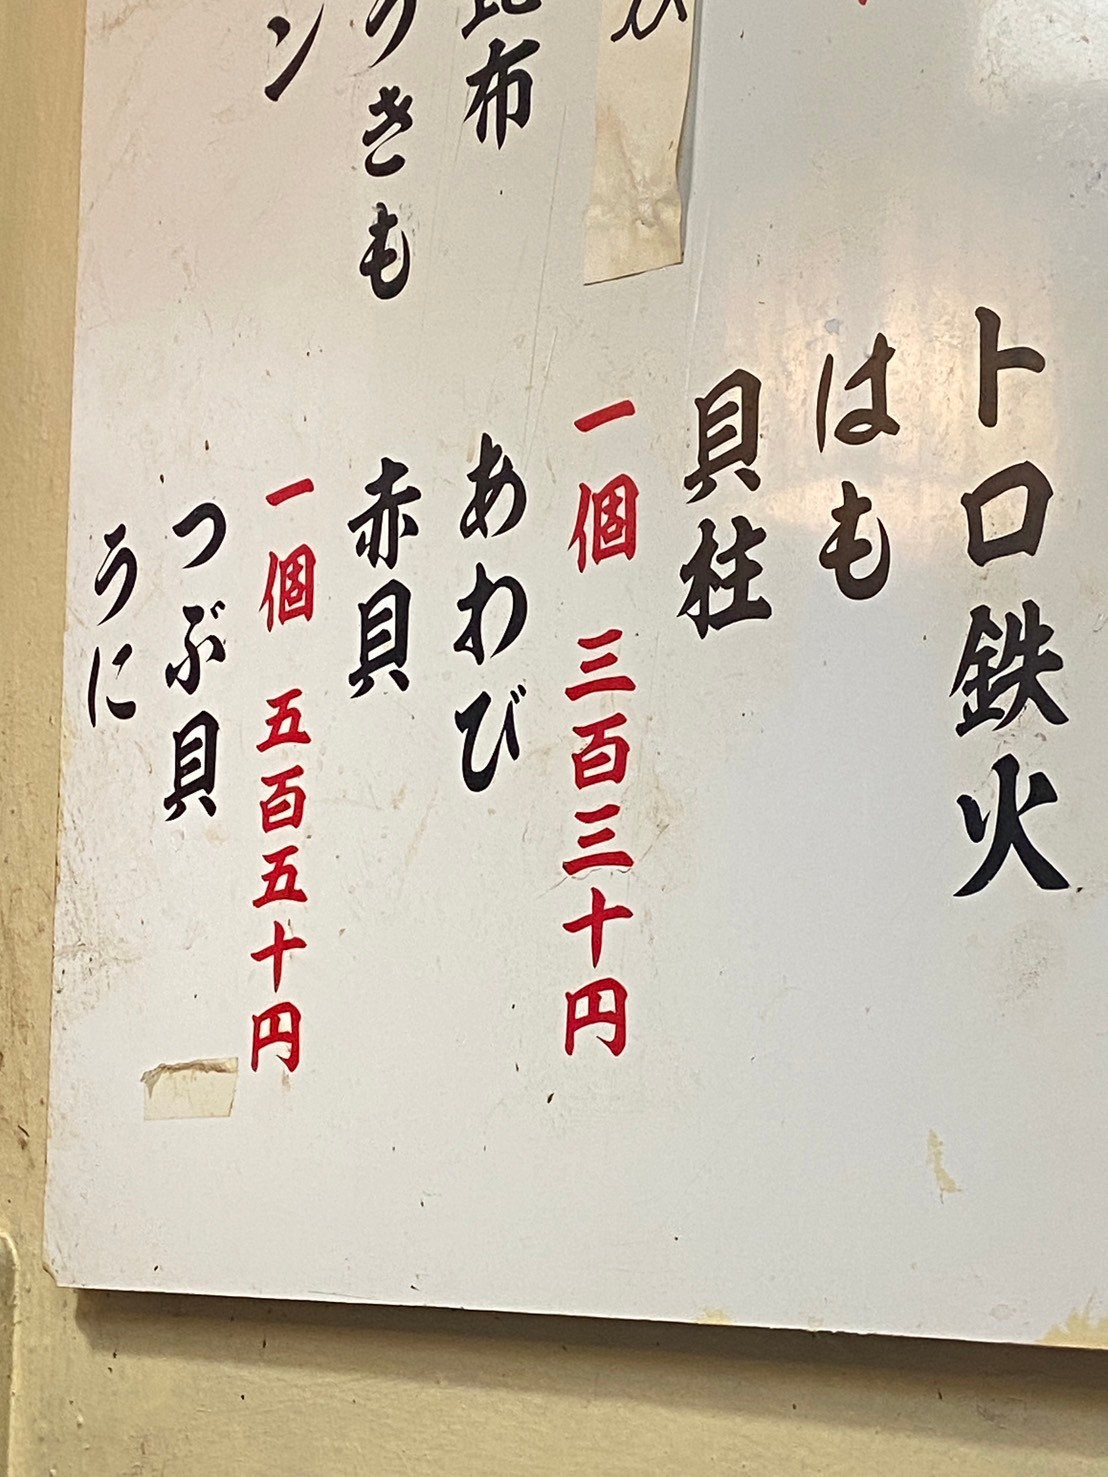 昆布
きも
ン
トロ鉄火
はも
貝柱
一個 三百三十円
あわび
赤貝
一個 五百五十円
つぶ貝
うに